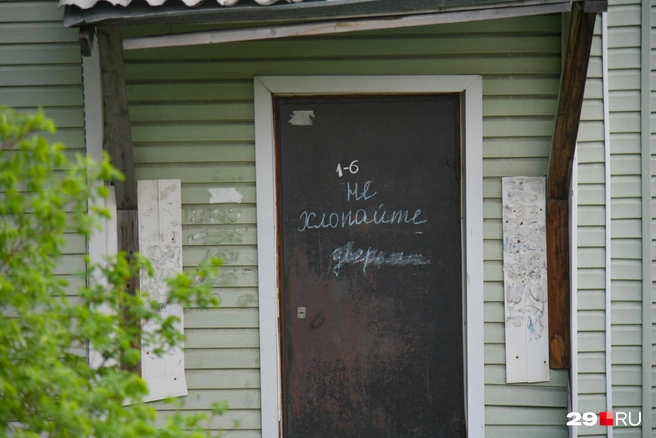 1-6
не
хлопайте
дверьми
29.RU